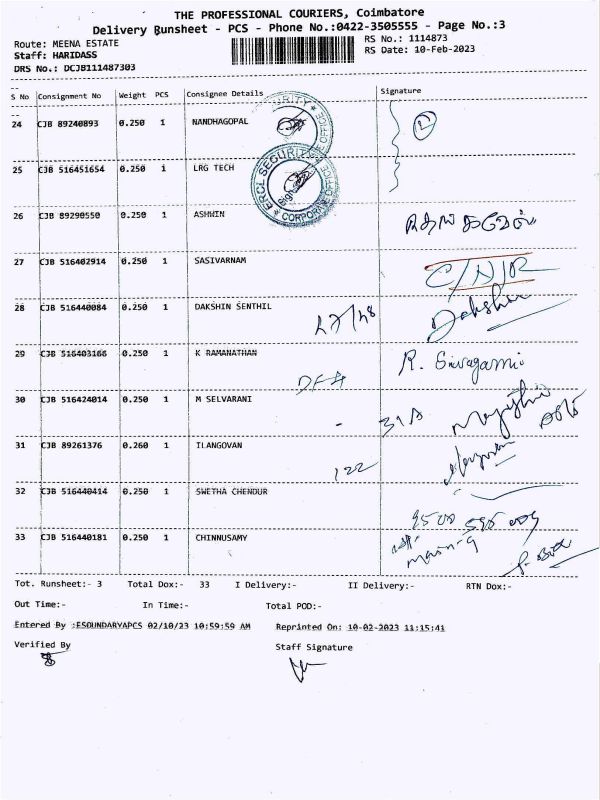 THE PROFESSIONAL COURIERS, Coimbatore
Delivery Runsheet - PCS - Phone No.:0422-3505555 - Page No.:3
Route: MEENA ESTATE RS No.: 1114873
Staff: HARIDASS RS Date: 10-Feb-2023
DRS No.: DCJB111487303
S No Consignment No Weight PCS Consignee Details Signature
24 CJB 89240893 0.250 1 NANDHAGOPAL 2
25 CJB 516451654 0.250 1 LRG TECH
ERCL SECURITY ★ CORPORATE OFFICE ★
26 CJB 89290550 0.250 1 ASHWIN
27 CJB 516402914 0.250 1 SASIVARNAM C/N/R
28 CJB 516440084 0.250 1 DAKSHIN SENTHIL 47/48 Dakshin
29 CJB 516403166 0.250 1 K RAMANATHAN DF4 R. Sivagami
30 CJB 516424014 0.250 1 M SELVARANI - 31A
31 CJB 89261376 0.260 1 ILANGOVAN 122
32 CJB 516440414 0.250 1 SWETHA CHENDUR
33 CJB 516440181 0.250 1 CHINNUSAMY
Tot. Runsheet:- 3 Total Dox:- 33 I Delivery:- II Delivery:- RTN Dox:-
Out Time:- In Time:- Total POD:-
Entered By :ESOUNDARYAPCS 02/10/23 10:59:59 AM Reprinted On: 10-02-2023 11:15:41
Verified By Staff Signature